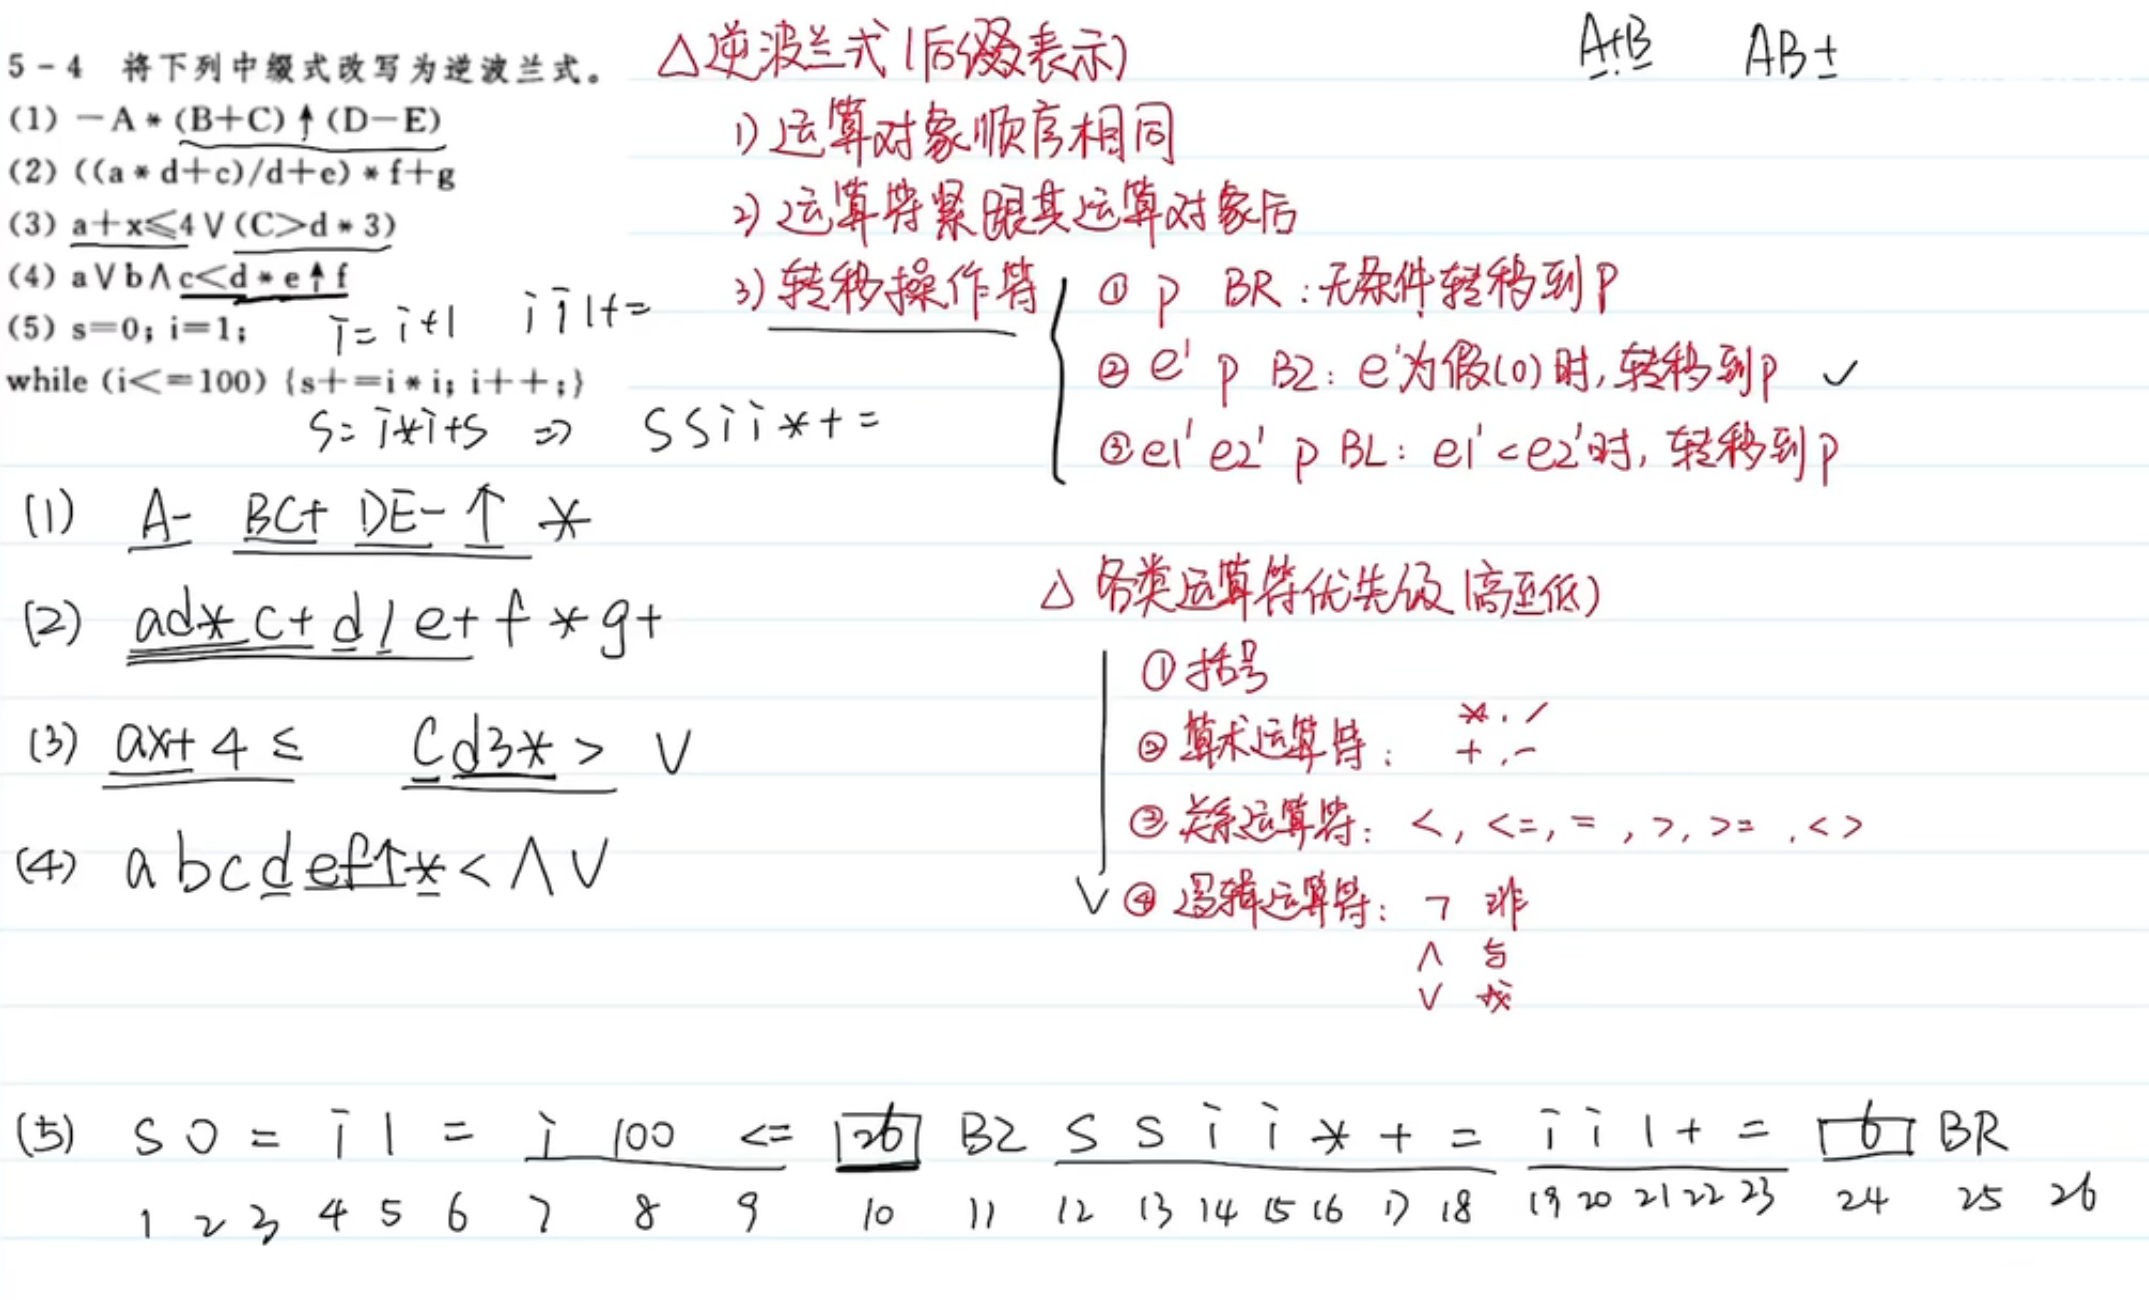 5-4 将下列中缀式改写为逆波兰式。
(1) -A*(B+C)↑(D-E)
(2) ((a*d+c)/d+e)*f+g
(3) a+x≤4∨(C>d*3)
(4) a∨b∧c<d*e↑f
(5) s=0; i=1;
while (i<=100) {s+=i*i; i++;}
i=i+1 i i 1+=
S=i*i+S ⇒ S S i i * + =
△逆波兰式(后缀表示)
A+B AB+
1) 运算对象顺序相同
2) 运算符紧跟其运算对象后
3) 转移操作符
① P BR:无条件转移到P
② e' p BZ: e'为假(0)时,转移到p ✓
③ e1' e2' p BL: e1'<e2'时,转移到p
(1) A- BC+ DE- ↑ *
(2) ad*c+d/e+f*g+
(3) ax+4≤ Cd3*> ∨
(4) abcdef↑*<∧∨
△ 各类运算符优先级(高至低)
① 括号
② 算术运算符: *, /
+, -
③ 关系运算符: <, <=, =, >, >=, <>
④ 逻辑运算符: ¬ 非
∧ 与
∨ 或
(5) S 0 = i 1 = i 100 <= 26 BZ S S i i * + = i i 1 + = 6 BR
1 2 3 4 5 6 7 8 9 10 11 12 13 14 15 16 17 18 19 20 21 22 23 24 25 26